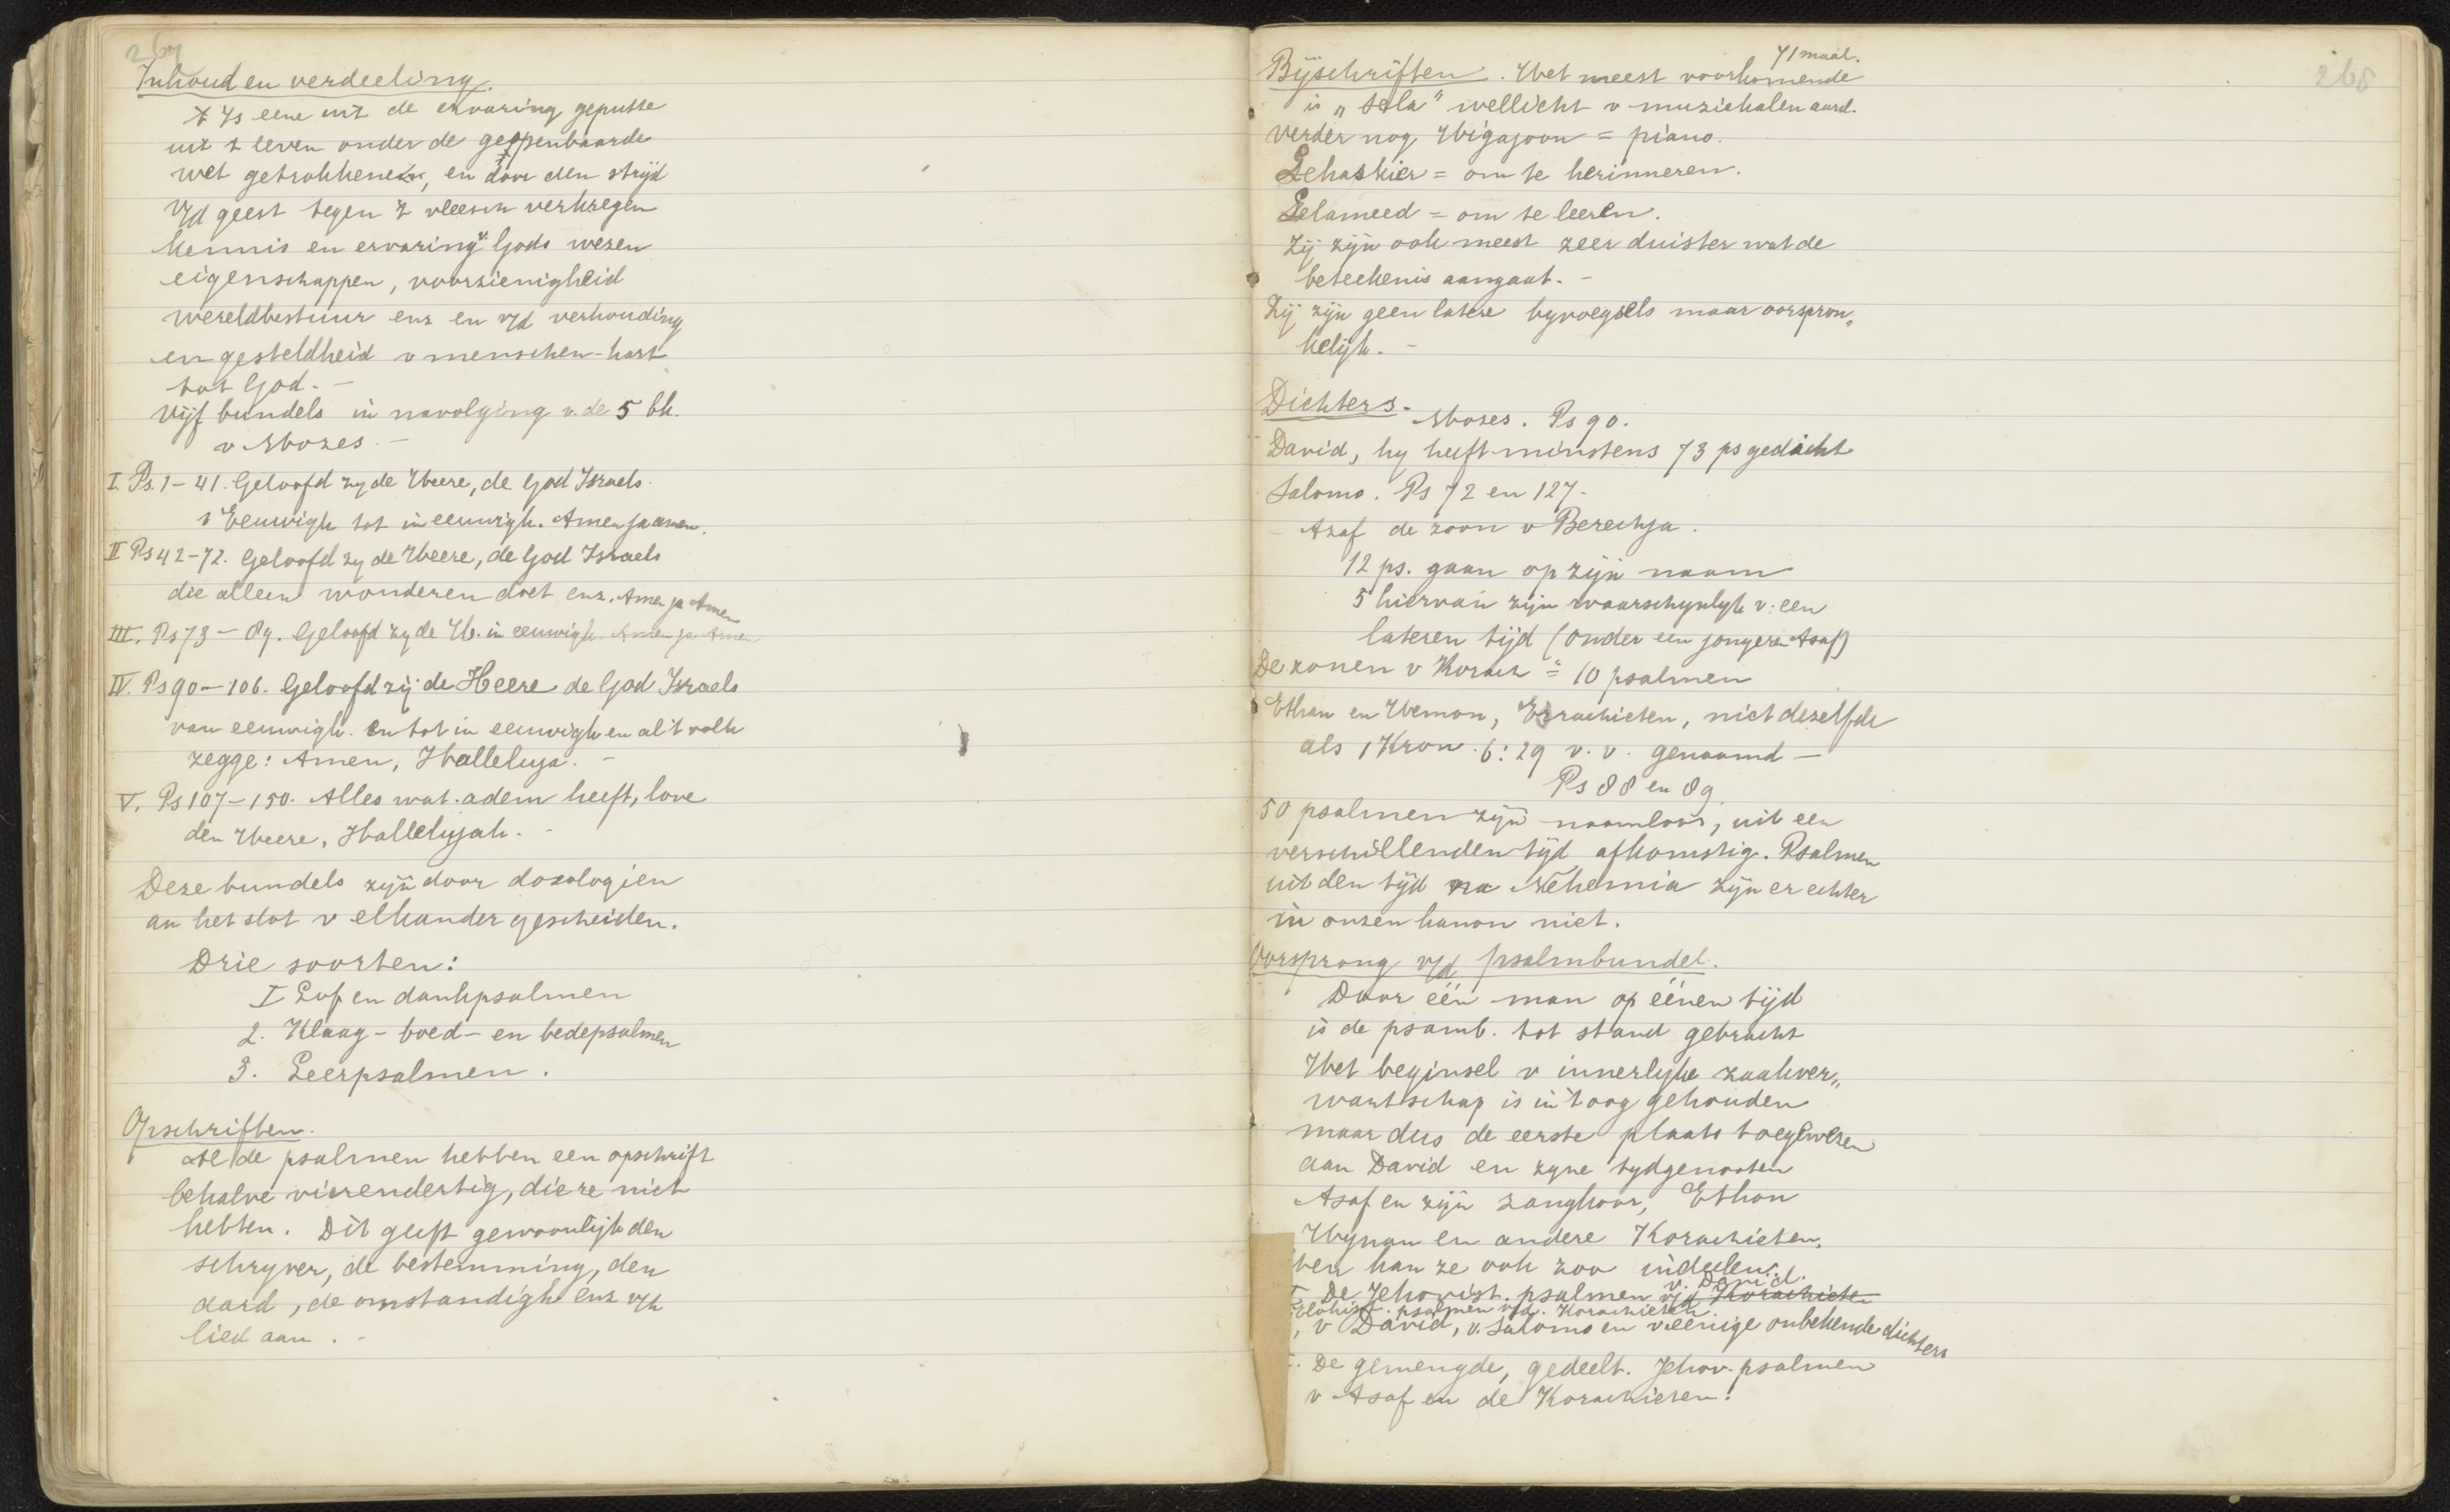 267
Inhoud en verdeeling.
't Is eene uit de ervaring geputte
uit 't leven onder de geopenbaarde
wet getrokkene, en door den strijd
v/d geest tegen 't vleesch verkregen
kennis en ervaring v. Gods wezen
eigenschappen, voorzienigheid
wereldbestuur enz en v/d verhouding
en gesteldheid v menschen-hart
tot God. -
Vijf bundels in navolging v. de 5 bk.
v Mozes. -
I. Ps. 1-41. Geloofd zy de Heere, de God Israels.
v Eeuwigh tot in eeuwigh. Amen ja amen.
II Ps 42-72. Geloofd zy de Heere, de God Israels
die alleen wonderen doet enz. Amen ja Amen
III. Ps 73 - 89. Geloofd zy de H. in eeuwigh. Amen ja Amen
IV. Ps 90-106. Geloofd zij de Heere de God Israels
van eeuwigh. en tot in eeuwigh en al 't volk
zegge: Amen, Halleluja. -
V. Ps 107-150. Alles wat adem heeft, love
den Heere, Hallelujah. -
Deze bundels zijn door doxologien
an het slot v elkander gescheiden.
Drie soorten:
I Lof en dankpsalmen
2. Klaag- boed- en bedepsalmen
3. Leerpsalmen.
Opschriften.
Al de psalmen hebben een opschrift
behalve vierendertig, die ze niet
hebben. Dit geeft gewoonlijk den
schryver, de bestemming, den
aard, de omstandigh enz v/h
lied aan. -
268
71 maal.
Bijschriften. Het meest voorkomende
is „Sela" wellicht v muziekalen aard.
Verder nog Higajoon = piano.
Lehaskier = om te herinneren.
Lelameed = om te leeren.
Zij zijn ook meest zeer duister wat de
beteekenis aangaat. -
Zij zijn geen latere byvoegsels maar oorspron„
kelijk. -
Dichters. Mozes. Ps 90.
David, hy heeft minstens 73 ps gedicht
Salomo. Ps 72 en 127.
Asaf de zoon v Berechja.
12 ps. gaan op zijn naam
5 hiervan zijn waarschynlyk v. een
lateren tijd (onder een jongeren Asaf)
De zonen v Korach = 10 psalmen
Ethan en Heman, Esrachieten, niet dezelfde
als 1 Kron. 6:29 v.v. genaamd -
Ps 88 en 89.
50 psalmen zijn naamloos, uit een
verschillenden tijd afkomstig. Psalmen
uit den tijd na Nehemia zijn er echter
in onzen kanon niet.
Oorsprong v/d psalmbundel.
Door één man op éénen tijd
is de psamb. tot stand gebracht
Het beginsel v innerlyke zaakver„
wantschap is in 't oog gehouden
maar dus de eerste plaats toegewezen
aan David en zyne tydgenooten
Asaf en zijn zangkoor, Ethan
Hyman en andere Korachieten.
kan ze ook zoo indeelen:
v. David.
De Jehovist. psalmen v/d Korachieten
Elohist. psalmen v/d. Korachieten.
, v David, v. Salomo en v. eenige onbekende dichters
De gemengde, gedeelt. Jehov. psalmen
v Asaf en de Korachieten.